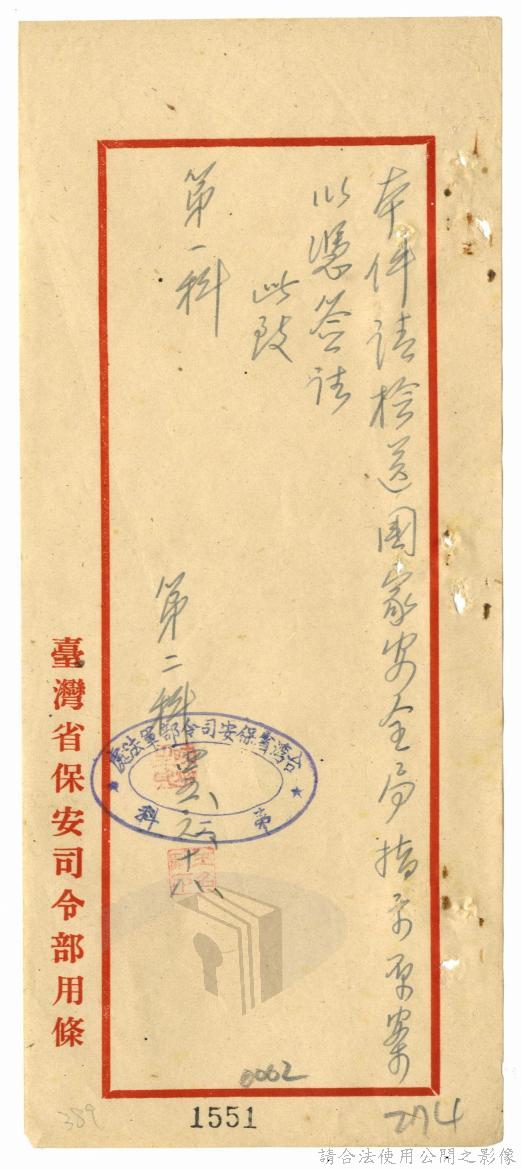 本件請檢送國家安全局指示原案
以憑簽請
此致
第一科
第二科
台灣省保安司令部軍法處
第二科
臺灣省保安司令部用條
0062
389
1551
274
請合法使用公開之影像